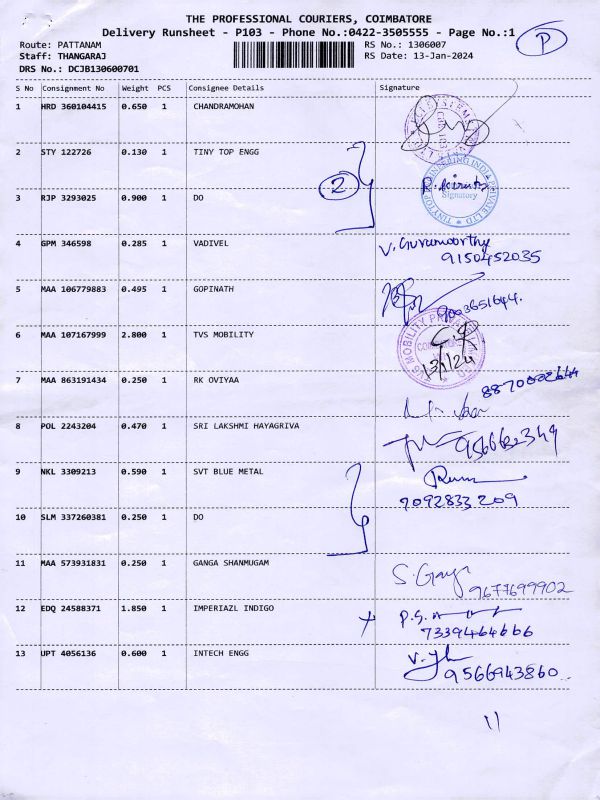 THE PROFESSIONAL COURIERS, COIMBATORE
Delivery Runsheet - P103 - Phone No.:0422-3505555 - Page No.:1
P
Route: PATTANAM
RS No.: 1306007
Staff: THANGARAJ
RS Date: 13-Jan-2024
DRS No.: DCJB130600701
S No Consignment No Weight PCS Consignee Details Signature
1 HRD 360104415 0.650 1 CHANDRAMOHAN
2 STY 122726 0.130 1 TINY TOP ENGG
2
TINYTOP ENGINEERING INDIA PRIVATE LTD
Signatory
3 RJP 3293025 0.900 1 DO
4 GPM 346598 0.285 1 VADIVEL
V. Gurumoorthy
9150452035
5 MAA 106779883 0.495 1 GOPINATH
9003651644.
6 MAA 107167999 2.800 1 TVS MOBILITY
TVS MOBILITY PRIVATE
13/1/24
7 MAA 863191434 0.250 1 RK OVIYAA
8 POL 2243204 0.470 1 SRI LAKSHMI HAYAGRIVA
9 NKL 3309213 0.590 1 SVT BLUE METAL
7092833209
10 SLM 337260381 0.250 1 DO
11 MAA 573931831 0.250 1 GANGA SHANMUGAM
9677699902
12 EDQ 24588371 1.850 1 IMPERIAZL INDIGO
7339464666
13 UPT 4056136 0.600 1 INTECH ENGG
9566943860
11